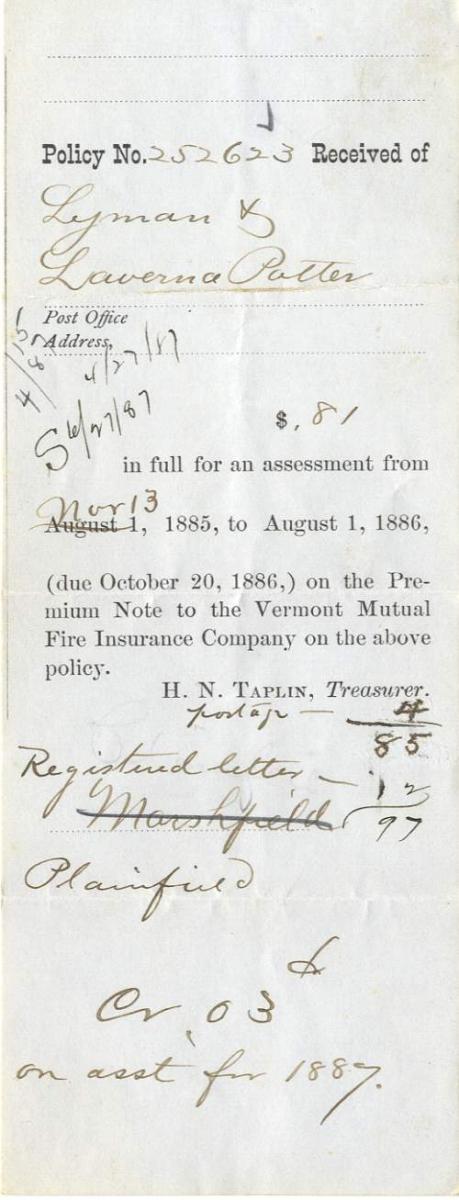 Policy No. 252623 Received of
Lyman &
Laverna Potter
Post Office
Address,
4/27/87
6/27/87
$ .81
in full for an assessment from
Nov 13
August 1, 1885, to August 1, 1886,
(due October 20, 1886,) on the Pre-
mium Note to the Vermont Mutual
Fire Insurance Company on the above
policy.
H. N. Taplin, Treasurer.
postage — 4
85
Registered letter — 12
Marshfield 97
Plainfield
Cr. 03
on asst for 1887.